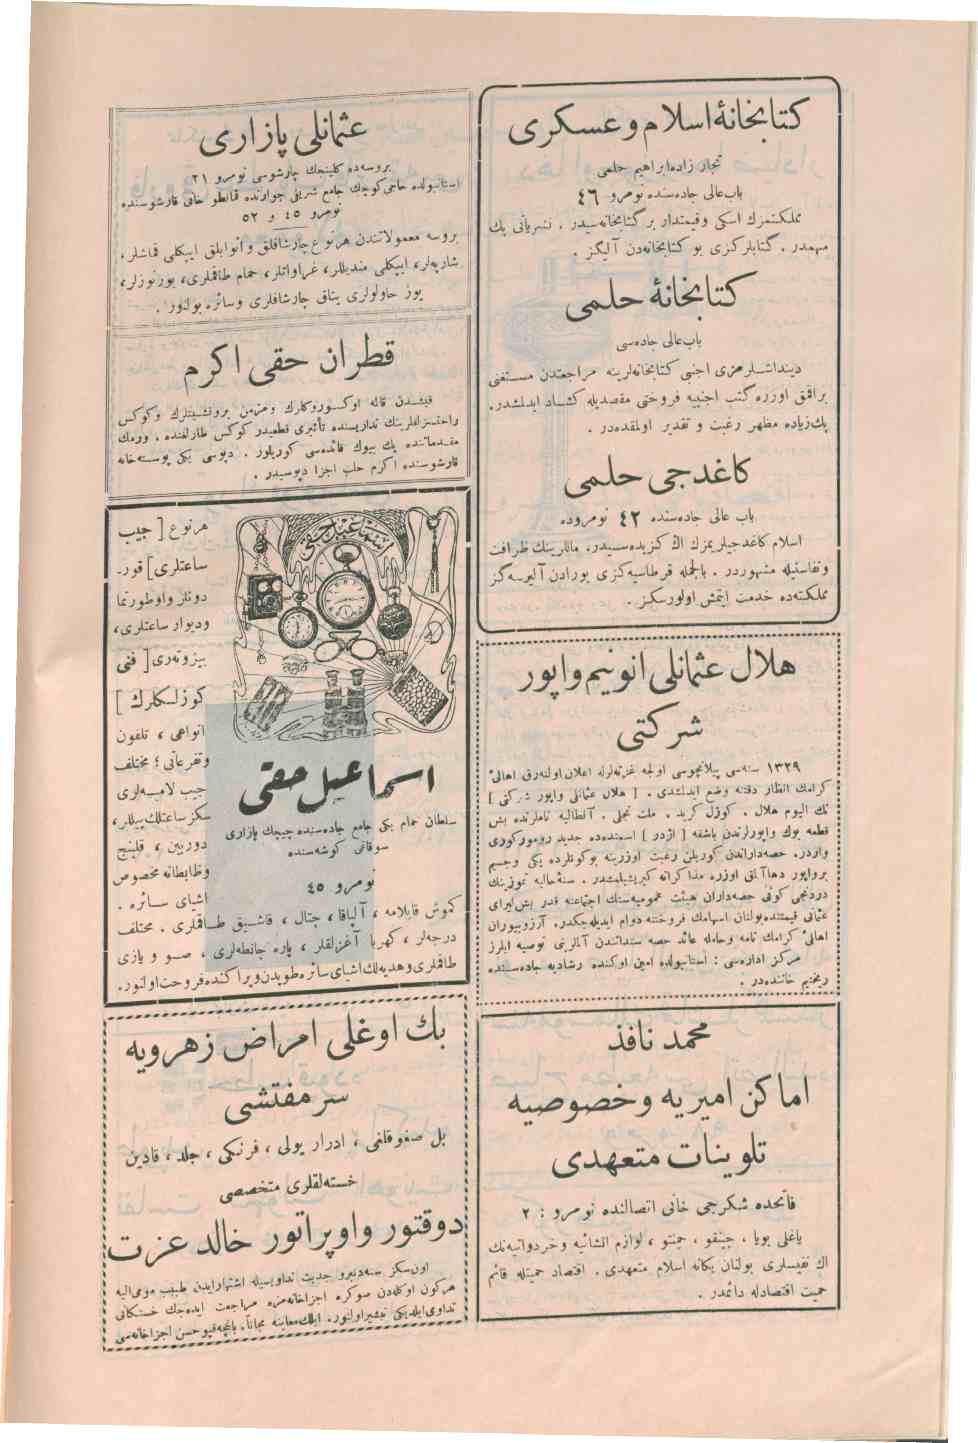 كتابخانهٔ اسلام و عسكرى
تجار زاده ابراهيم حلمى
باب عالى جاده‌سنده نومرو ٤٦
مملكتمزك اسكى وقيمتدار بر كتابخانه‌سيدر . نشرياتى پك
مهمدر . كتابلركزى بو كتابخانه‌دن آليكز .
كتابخانهٔ حلمى
باب عالى جاده‌سى
ديندا شلرمزى اجنبى كتابخانه‌لرينه مراجعتدن مستغنى
براقمق اوزره كتب اجنبيه فروختى مقصديله كشاد ايدلمشدر.
پك زياده مظهر رغبت و تقدير اولمقده‌در .
كاغدجى حلمى
باب عالى جاده‌سنده ٤٢ نومروده
اسلام كاغدجيلريمزك اڭ كزيده‌سيدر. ماللرينك ظرافت
ونفاستيله مشهوردر . بالجمله قرطاسيه‌كزى بورادن آليرسه‌كز
مملكته‌ده خدمت ايتمش اولورسكز .
هلال عثمانلى انونيم واپور
شركتى
١٣٢٩ سنه‌سى پيلانچوسى اولجه غزته‌لرله اعلان اولنه‌رق اهالئ
كرامك انظار دقتنه وضع ايدلمشدى . [ هلال عثمانلى واپور شركتى ]
نك اليوم هلال . كوزل كريد . ملت نجلى . آنطاليه ناملرنده بش
قطعه بوك واپورلرندن باشقه [ اژدر ] اسمنده‌ده جديد روموركورى
واردر. حصه‌داراندن كوريلن رغبت اوزرينه بوكونلرده يكى وجسيم
برواپور دها آلمق اوزره مذاكراته كيريشيلمشدر . سنهٔ حاليه تموزينك
دردنجى كونى حصه‌داران هيئت عموميه‌سنك اجتماعنه قدر بش ليراى
عثمانى قيمتنده بولنان اسهامك فروختنه دوام ايديله‌جكدر. آرزو بيوران
اهالئ كرامك نامه وحامله عائد حصه سنداتندن آلملرينى توصيه ايلرز
مركز اداره‌سى : استانبولده امين اوكنده رشاديه جاده‌سنده
خاننده‌در .
محمد نافذ
اماكن اميريه وخصوصيه
تلوينات متعهدى
فاتحده شكرجى خانى اتصالنده نومرو : ٢
ياغلى بويا ، چينقو ، چمنتو ، لوازم انشائيه وخردواتيه‌نك
اك نفيسلرى بولنان يكانه اسلام متعهدى . اقتصاد حميتله قائم
حميت اقتصادله دائمدر .
عثمانلى پازارى
بروسه‌ده كلينجك چارشوسى نومرو ٢١
استانبولده حاجى كوچك جامع شريفى جوارنده قانطو خانى قارشوسنده
نومرو ٤٥ و ٥٢
بروسه معمولاتندن هرنوع چارشافلق و انوابلق ايپكلى قماشلر،
شاريه‌لر، ايپكلى منديللر، غراواتلر، حمام طاقملرى، بورنوزلر،
يوز حاولولرى يتاق چارشافلرى وسائره بولنور .
قطران حقى اكرم
راحتسزلقلرينك تداويسنده تأثيرى قطعيدر كوكس طارلغنده ، ورمك
مقدماتنده پك بيوك فائده‌سى كوريلور . ديپوسى يكى پوسته‌خانه
قارشوسنده اكرم حلب اجزا ديپوسيدر .
هرنوع [ جيب
ساعتلرى ] قور-
دونلر واوطورتما
وديوار ساعتلرى،
بيژوته‌رى [ فنى
كوزلكلرك ]
انواعى ، تلفون
وتفرعاتى ؛ مختلف
جيب لامبه‌لرى
سكز ساعتلك پيللر،
دوربين ، قلينج
وظابطانه مخصوص
اشياى سائره .
اسماعيل حقى
اسماعيل حقى
سلطان حمام يكى جامع جاده‌سنده چيچك پازارى
سوقاغى كوشه‌سنده
نومرو ٤٥
كموش قابلامه ، آلپاقا ، چتال ، قاشيق طاقملرى . مختلف
درجه‌لر ، كهربا آغزلقلر ، پاره جانطه‌لرى ، صو و يازى
طاقملرى وهديه‌لك اشياى سائره طوپدن وپراكنده فروخت اولنور.
بك اوغلى امراض زهرويه
سرمفتشى
بل صغوقلغى ، ادرار يولى ، فرنكى ، جلد ، قادين
خسته‌لقلرى متخصصى
دوقتور واوپراتور خالد عزت
اون سكز سنه‌دنبرو جديت تداويسيله اشتهار ايدن طبيب مومى‌اليه
هركون اوكله‌دن صوكره اجزاخانه‌مزه مراجعت ايده‌جك خستكانى
تداوى ايلديكى تبشير اولنور. ايلك معاينه مجاناً. باغچه‌قپو حسن اجزاخانه‌سى